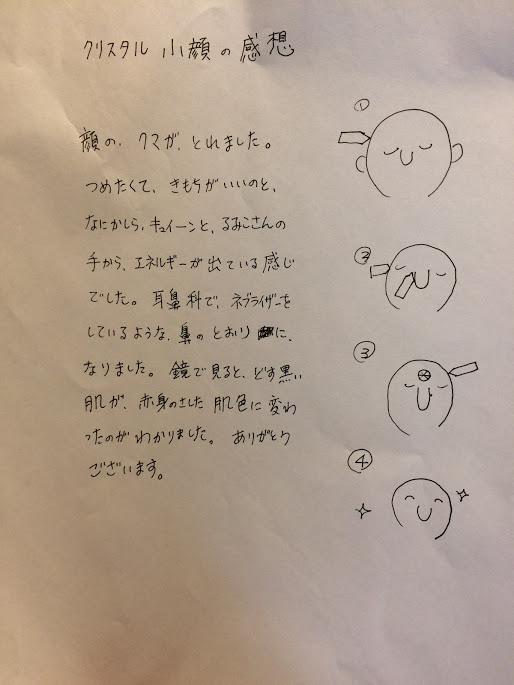 クリスタル 小顔の感想
顔の、クマが、とれました。
つめたくて、きもちがいいのと、
なにかしら、キュイーンと、るみこさんの
手から、エネルギーが出ている感じ
でした。耳鼻科で、ネブライザーを
しているような、鼻のとおりに、
なりました。鏡で見ると、どす黒い
肌が、赤身のさした肌色に変わ
ったのがわかりました。ありがとう
ございます。
①
②
③
④